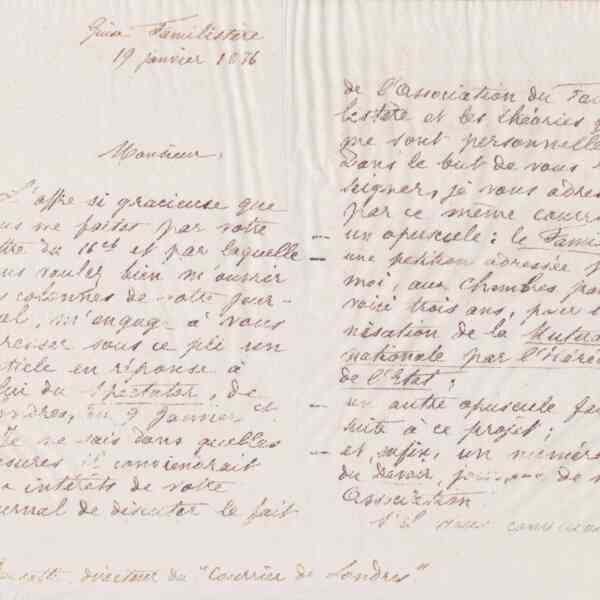 Guise Familistère
19 janvier 1886
Monsieur,
L'offre si gracieuse que
ous me faites par votre
ttre du 16 ct et par laquelle
ous voulez bien m'ouvrir
s colonnes de votre jour-
al, m'engage à vous
resser sous ce pli un
rticle en réponse à
lui du Spectator, de
ondres, du 9 Janvier ct.
Je ne sais dans quelles
esures il conviendrait
x intérêts de votre
urnal de discuter le fait
directeur du "Courrier de Londres"
de l'Association du Fami
listère et les théories q
me sont personnelle
Dans le but de vous
seigner, je vous adres
par ce même courr
— un opuscule : le Famil
— une pétition adressée p
moi, aux chambres
voici trois ans, pour l'
nisation de la Mutua
nationale par l'Héréd
de l'Etat ;
— un autre opuscule fai
suite à ce projet ;
— et, enfin, un numéro
du Devoir, de n
Association.
S'il vous conven